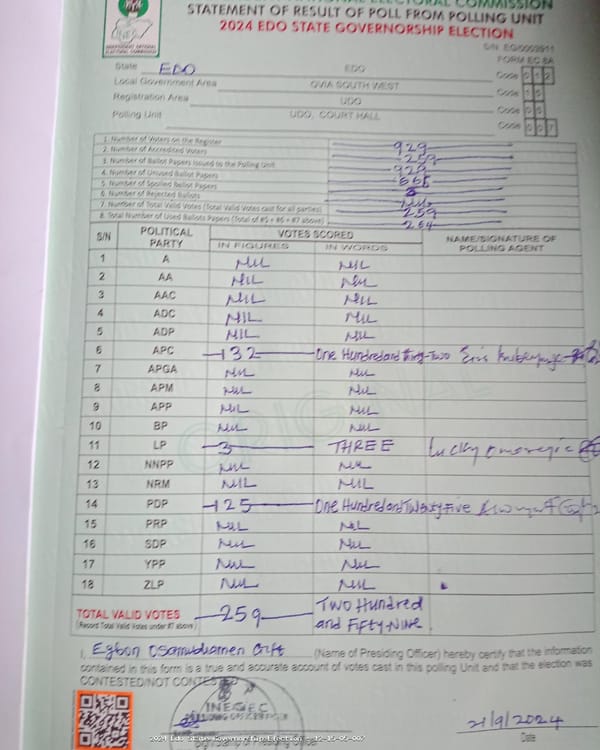 INDEPENDENT NATIONAL ELECTORAL COMMISSION
STATEMENT OF RESULT OF POLL FROM POLLING UNIT
2024 EDO STATE GOVERNORSHIP ELECTION
FORM EC 8A
State EDO EDO Code 0 1 2
Local Government Area OVIA SOUTH WEST Code
Registration Area UDO Code
Polling Unit UDO, COURT HALL Code
1. Number of Voters on the Register 929
2. Number of Accredited Voters 259
3. Number of Ballot Papers Issued to the Polling Unit 929
4. Number of Unused Ballot Papers
5. Number of Spoiled Ballot Papers
6. Number of Rejected Ballots NIL
7. Number of Total Valid Votes (Total Valid Votes cast for all parties) 259
8. Total Number of Used Ballots Papers (Total of #5 + #6 + #7 above)
S/N POLITICAL PARTY VOTES SCORED IN FIGURES IN WORDS NAME/SIGNATURE OF POLLING AGENT
1 A NIL NIL
2 AA NIL NIL
3 AAC NIL NIL
4 ADC NIL NIL
5 ADP NIL NIL
6 APC 132 One Hundred and thirty-Two
7 APGA NIL NIL
8 APM NIL NIL
9 APP NIL NIL
10 BP NIL NIL
11 LP 3 THREE Lucky omoregie
12 NNPP NIL NIL
13 NRM NIL NIL
14 PDP 125 One Hundred and Twenty Five
15 PRP NIL NIL
16 SDP NIL NIL
17 YPP NIL NIL
18 ZLP NIL NIL
TOTAL VALID VOTES 259 Two Hundred and Fifty Nine.
(Record Total Valid Votes under #7 above)
I, Egbon Osamudiamen Gift (Name of Presiding Officer) hereby certify that the information
contained in this form is a true and accurate account of votes cast in this polling Unit and that the election was
CONTESTED/NOT CONTESTED
INEC
21/9/2024
Date